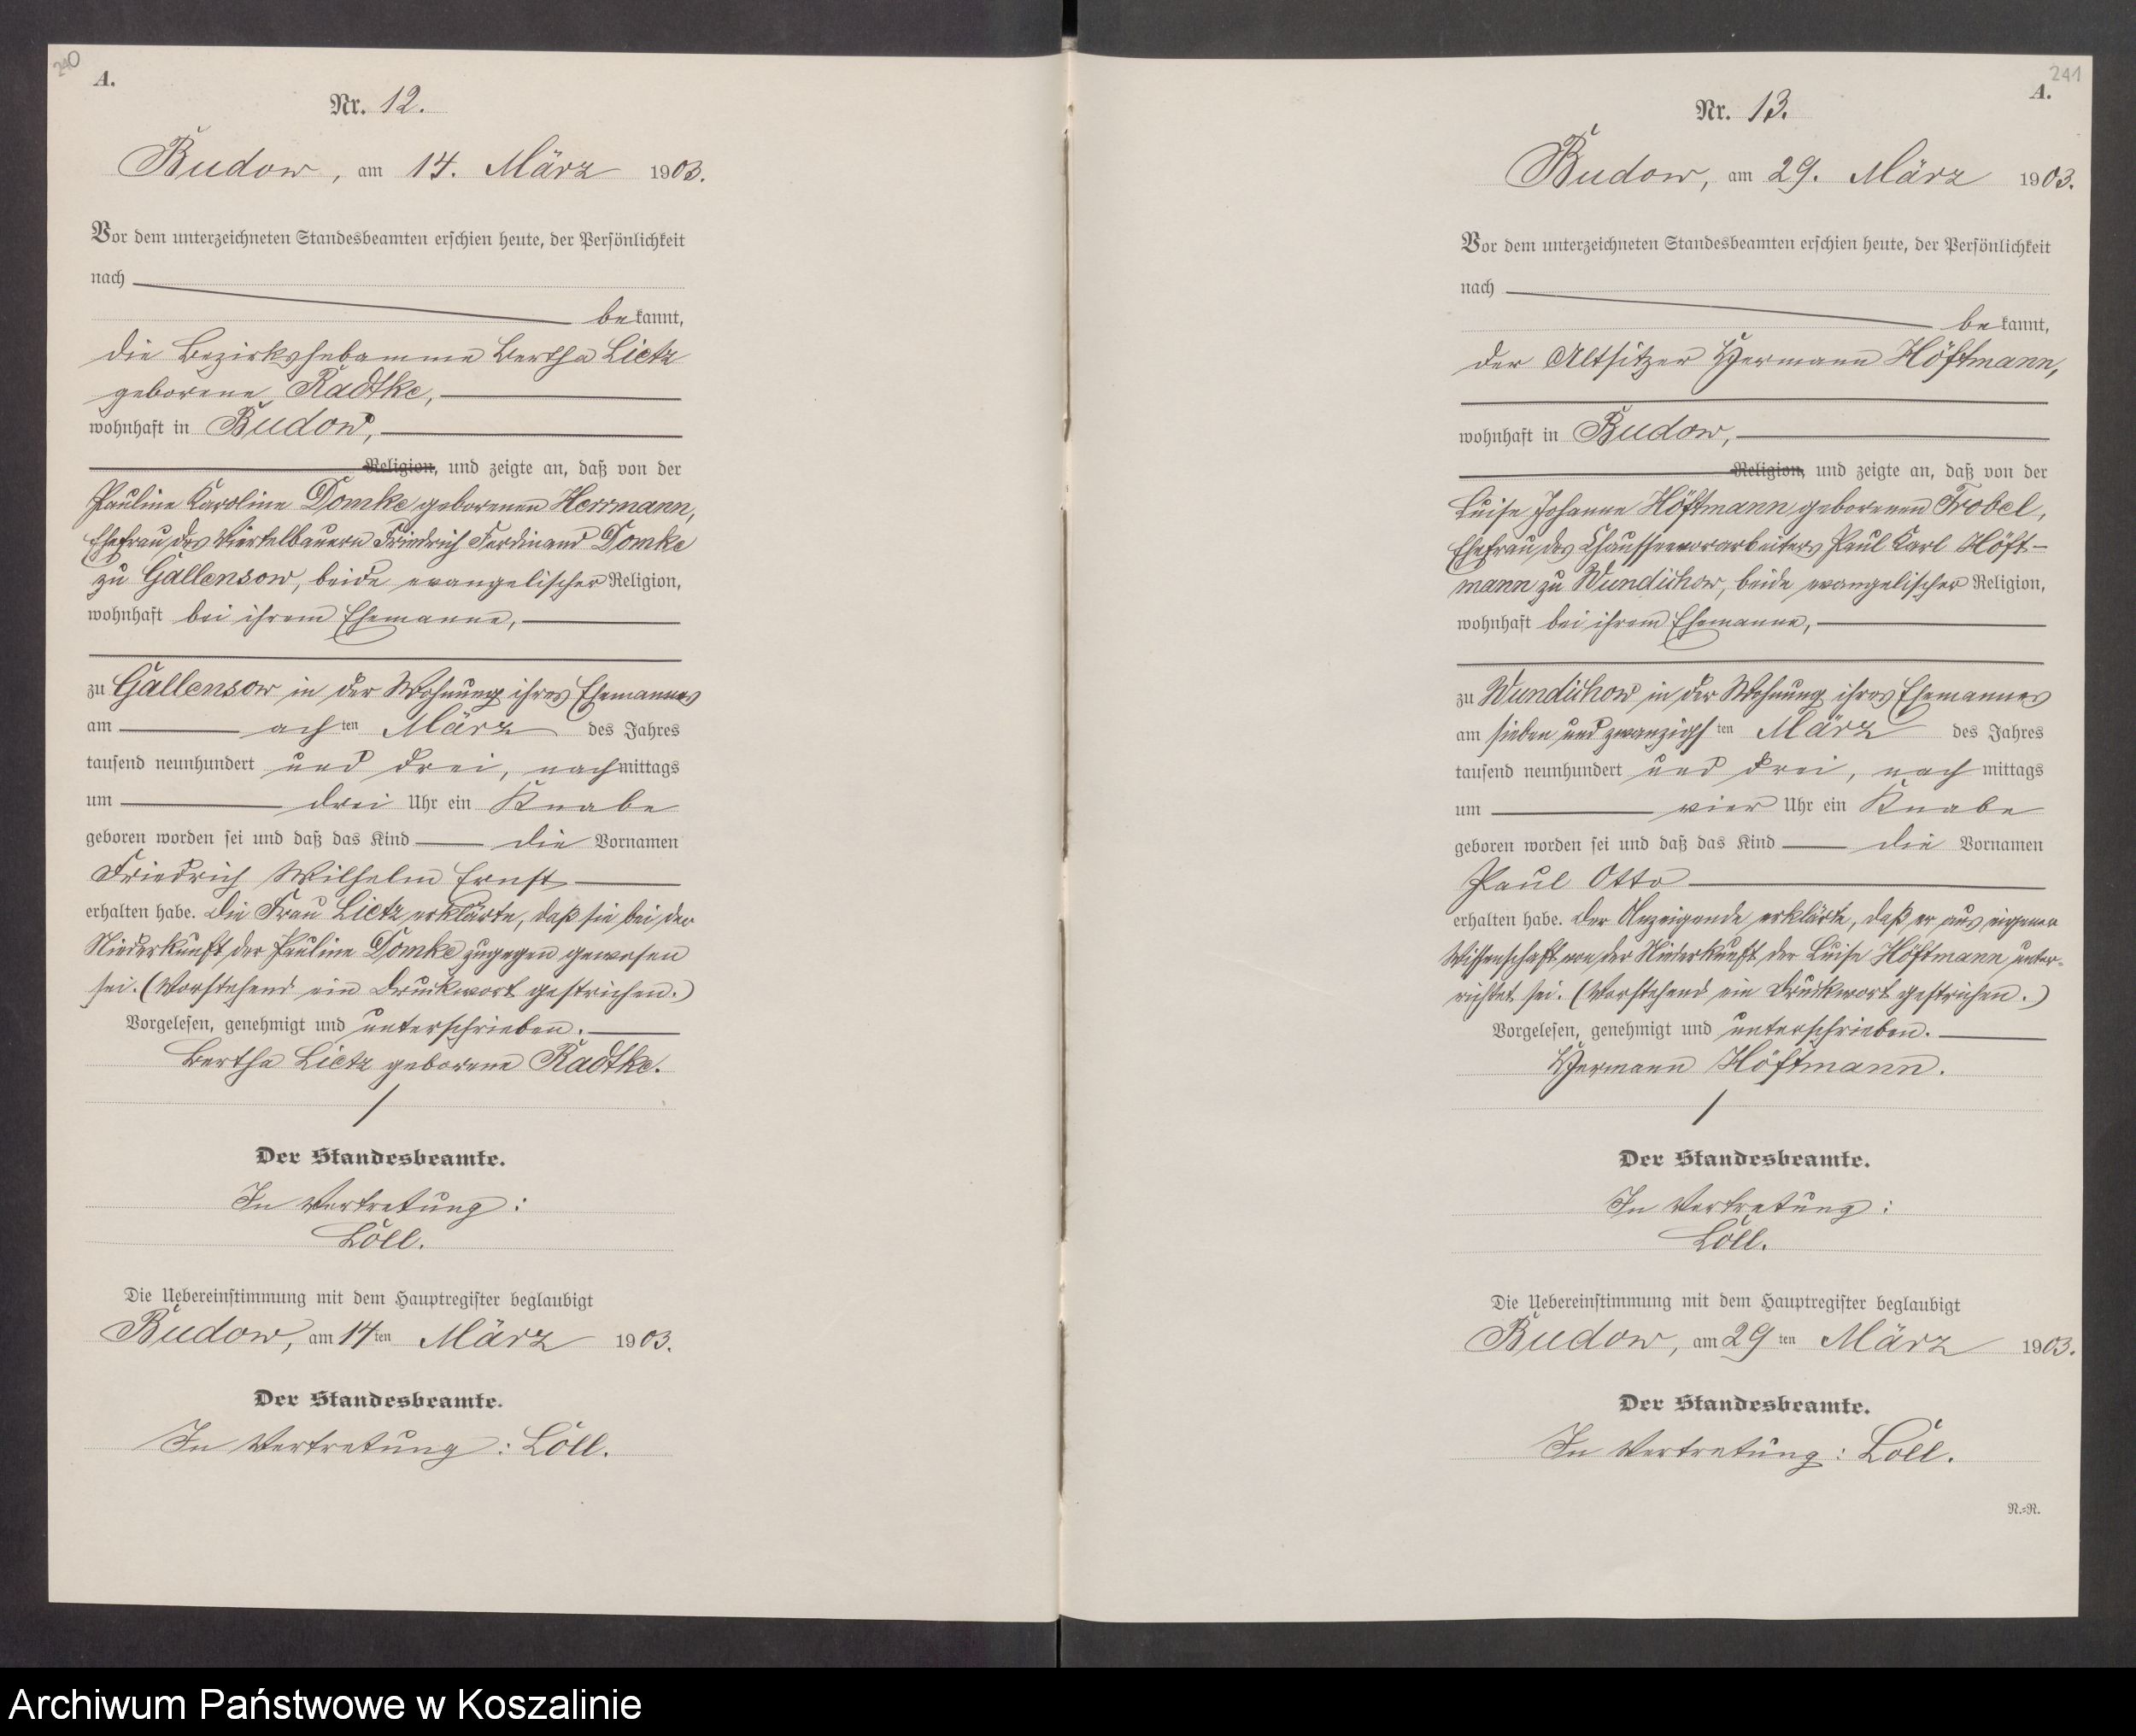 240
A.
Nr. 12.
Budow, am 14. März 1903.
Vor dem unterzeichneten Standesbeamten erschien heute, der Persönlichkeit
nach
bekannt,
die Bezirkshebamme Bertha Lietz
geborene Radtke,
wohnhaft in Budow,
Religion, und zeigte an, daß von der
Pauline Karoline Domke geborenen Herrmann,
Ehefrau des Viertelbauern Friedrich Ferdinand Domke
zu Gallensow, beide evangelischer Religion,
wohnhaft bei ihrem Ehemanne,
zu Gallensow in der Wohnung ihres Ehemannes
am achten März des Jahres
tausend neunhundert und drei, nachmittags
um drei Uhr ein Knabe
geboren worden sei und daß das Kind die Vornamen
Friedrich Wilhelm Ernst
erhalten habe. Die Frau Lietz erklärte, daß sie bei der
Niederkunft der Pauline Domke zugegen gewesen
sei. (Vorstehend ein Druckwort gestrichen.)
Vorgelesen, genehmigt und unterschrieben.
Bertha Lietz geborene Radtke.
Der Standesbeamte.
In Vertretung:
Loll.
Die Uebereinstimmung mit dem Hauptregister beglaubigt
Budow, am 14ten März 1903.
Der Standesbeamte.
In Vertretung: Loll.
241
A.
Nr. 13.
Budow, am 29. März 1903.
Vor dem unterzeichneten Standesbeamten erschien heute, der Persönlichkeit
nach
bekannt,
der Altsitzer Hermann Höftmann,
wohnhaft in Budow,
Religion, und zeigte an, daß von der
Luise Johanne Höftmann geborenen Frobel,
Ehefrau des Chausseevorarbeiters Paul Karl Höft-
mann zu Wundichow, beide evangelischer Religion,
wohnhaft bei ihrem Ehemanne,
zu Wundichow in der Wohnung ihres Ehemannes
am sieben und zwanzigsten März des Jahres
tausend neunhundert und drei, nachmittags
um vier Uhr ein Knabe
geboren worden sei und daß das Kind die Vornamen
Paul Otto
erhalten habe. Der Anzeigende erklärte, daß er aus eigener
Wissenschaft von der Niederkunft der Luise Höftmann unter-
richtet sei. (Vorstehend ein Druckwort gestrichen.)
Vorgelesen, genehmigt und unterschrieben.
Hermann Höftmann.
Der Standesbeamte.
In Vertretung:
Loll.
Die Uebereinstimmung mit dem Hauptregister beglaubigt
Budow, am 29ten März 1903.
Der Standesbeamte.
In Vertretung: Loll.
N.=R.
Archiwum Państwowe w Koszalinie